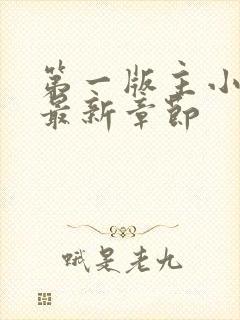 第一版主小
最新章节
哦是老九